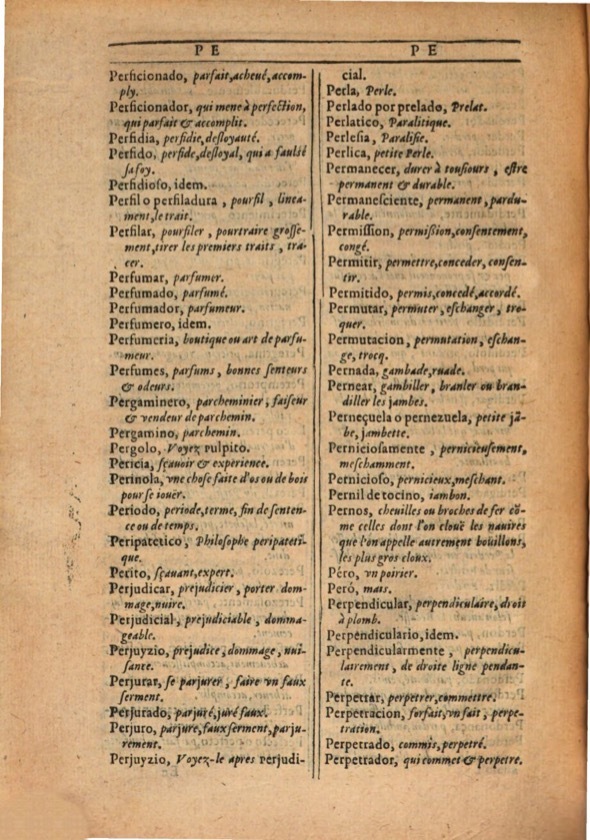 P E
P E
Perficionado, parfait, acheué, accom-
ply.
Perficionador, qui mene à perfection,
qui parfait & accomplit.
Perfidia, perfidie, desloyauté.
Perfido, perfide, desloyal, qui a faulsé
sa foy.
Perfidioso, idem.
Perfil o perfiladura, pourfil, linea-
ment, le trait.
Perfilar, pourfiler, pourtraire grosse-
ment, tirer les premiers traits, tra-
cer.
Perfumar, parfumer.
Perfumado, parfumé.
Perfumador, parfumeur.
Perfumero, idem.
Perfumeria, boutique ou art de parfu-
meur.
Perfumes, parfums, bonnes senteurs
& odeurs.
Pergaminero, parcheminier, faiseur
& vendeur de parchemin.
Pergamino, parchemin.
Pergolo, Voyez Pulpito.
Pericia, sçauoir & experience.
Perinola, vne chose faite d'os ou de bois
pour se iouër.
Periodo, periode, terme, fin de senten-
ce ou de temps.
Peripatetico, Philosophe peripateti-
que.
Perito, sçauant, expert.
Perjudicar, prejudicier, porter dom-
mage, nuire.
Perjudicial, prejudiciable, domma-
geable.
Perjuyzio, prejudice, dommage, nui-
sante.
Perjurar, se parjurer, faire vn faux
serment.
Perjurado, parjuré, juré faux.
Perjuro, parjure, faux serment, parju-
rement.
Perjuyzio, Voyez-le apres Perjudi-
cial.
Perla, Perle.
Perlado por prelado, Prelat.
Perlatico, Paralitique.
Perlesia, Paralisie.
Perlica, petite Perle.
Permanecer, durer à tousiours, estre
permanent & durable.
Permanesciente, permanent, pardu-
rable.
Permission, permission, consentement,
congé.
Permitir, permettre, conceder, consen-
tir.
Permitido, permis, concedé, accordé.
Permutar, permuter, eschanger, tro-
quer.
Permutacion, permutation, eschan-
ge, trocq.
Pernada, gambade, ruade.
Pernear, gambiller, branler ou bran-
diller les jambes.
Perneçuela o pernezuela, petite jã-
be, jambette.
Perniciosamente, pernicieusement,
meschamment.
Pernicioso, pernicieux, meschant.
Pernil de tocino, iambon.
Pernos, cheuilles ou broches de fer cõ-
me celles dont l'on clouë les nauires
que l'on appelle autrement boüillons,
les plus gros cloux.
Péro, vn poirier.
Peró, mais.
Perpendicular, perpendiculaire, droit
à plomb.
Perpendiculario, idem.
Perpendicularmente, perpendicu-
lairement, de droite ligne pendan-
te.
Perpetrar, perpetrer, commettre.
Perpetracion, forfait, vn fait, perpe-
tration.
Perpetrado, commis, perpetré.
Perpetrador, qui commet & perpetre.